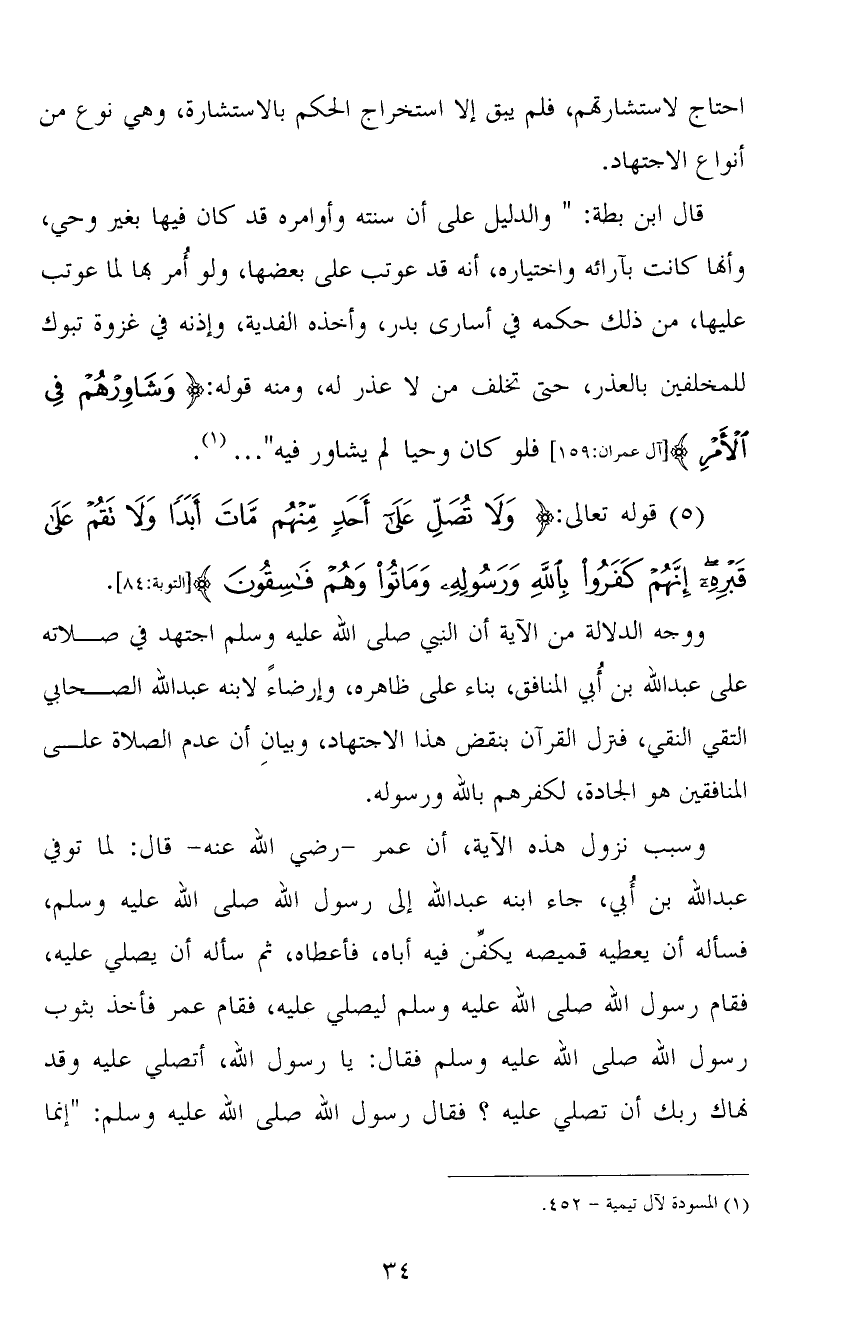 احتاج لاستشارتهم، فلم يبق إلا استخراج الحكم بالاستشارة، وهي نوع من
أنواع الاجتهاد.
قال ابن بطة: " والدليل على أن سنته وأوامره قد كان فيها بغير وحي،
وأنها كانت بآرائه واختياره، أنه قد عوتب على بعضها، ولو أُمر بها لما عوتب
عليها، من ذلك حكمه في أسارى بدر، وأخذه الفدية، وإذنه في غزوة تبوك
للمخلفين بالعذر، حتى تخلف من لا عذر له، ومنه قوله:﴿ وَشَاوِرْهُمْ فِي
ٱلْأَمْرِ ﴾[آل عمران:١٥٩] فلو كان وحيا لم يشاور فيه"... (١).
(٥) قوله تعالى:﴿ وَلَا تُصَلِّ عَلَىٰٓ أَحَدٍ مِّنْهُم مَّاتَ أَبَدًا وَلَا تَقُمْ عَلَىٰ
قَبْرِهِۦٓ ۖ إِنَّهُمْ كَفَرُوا۟ بِٱللَّهِ وَرَسُولِهِۦ وَمَاتُوا۟ وَهُمْ فَـٰسِقُونَ ﴾[التوبة:٨٤].
ووجه الدلالة من الآية أن النبي صلى الله عليه وسلم اجتهد في صـــلاته
على عبدالله بن أُبي المنافق، بناء على ظاهره، وإرضاءً لابنه عبدالله الصــحابي
التقي النقي، فنزل القرآن بنقض هذا الاجتهاد، وبيانِ أن عدم الصلاة علــى
المنافقين هو الجادة، لكفرهم بالله ورسوله.
وسبب نزول هذه الآية، أن عمر -رضي الله عنه- قال: لما توفي
عبدالله بن أُبي، جاء ابنه عبدالله إلى رسول الله صلى الله عليه وسلم،
فسأله أن يعطيه قميصه يكفِّن فيه أباه، فأعطاه، ثم سأله أن يصلي عليه،
فقام رسول الله صلى الله عليه وسلم ليصلي عليه، فقام عمر فأخذ بثوب
رسول الله صلى الله عليه وسلم فقال: يا رسول الله، أتصلي عليه وقد
نهاك ربك أن تصلي عليه ؟ فقال رسول الله صلى الله عليه وسلم: "إنما
(١) المسودة لآل تيمية - ٤٥٢.
٣٤